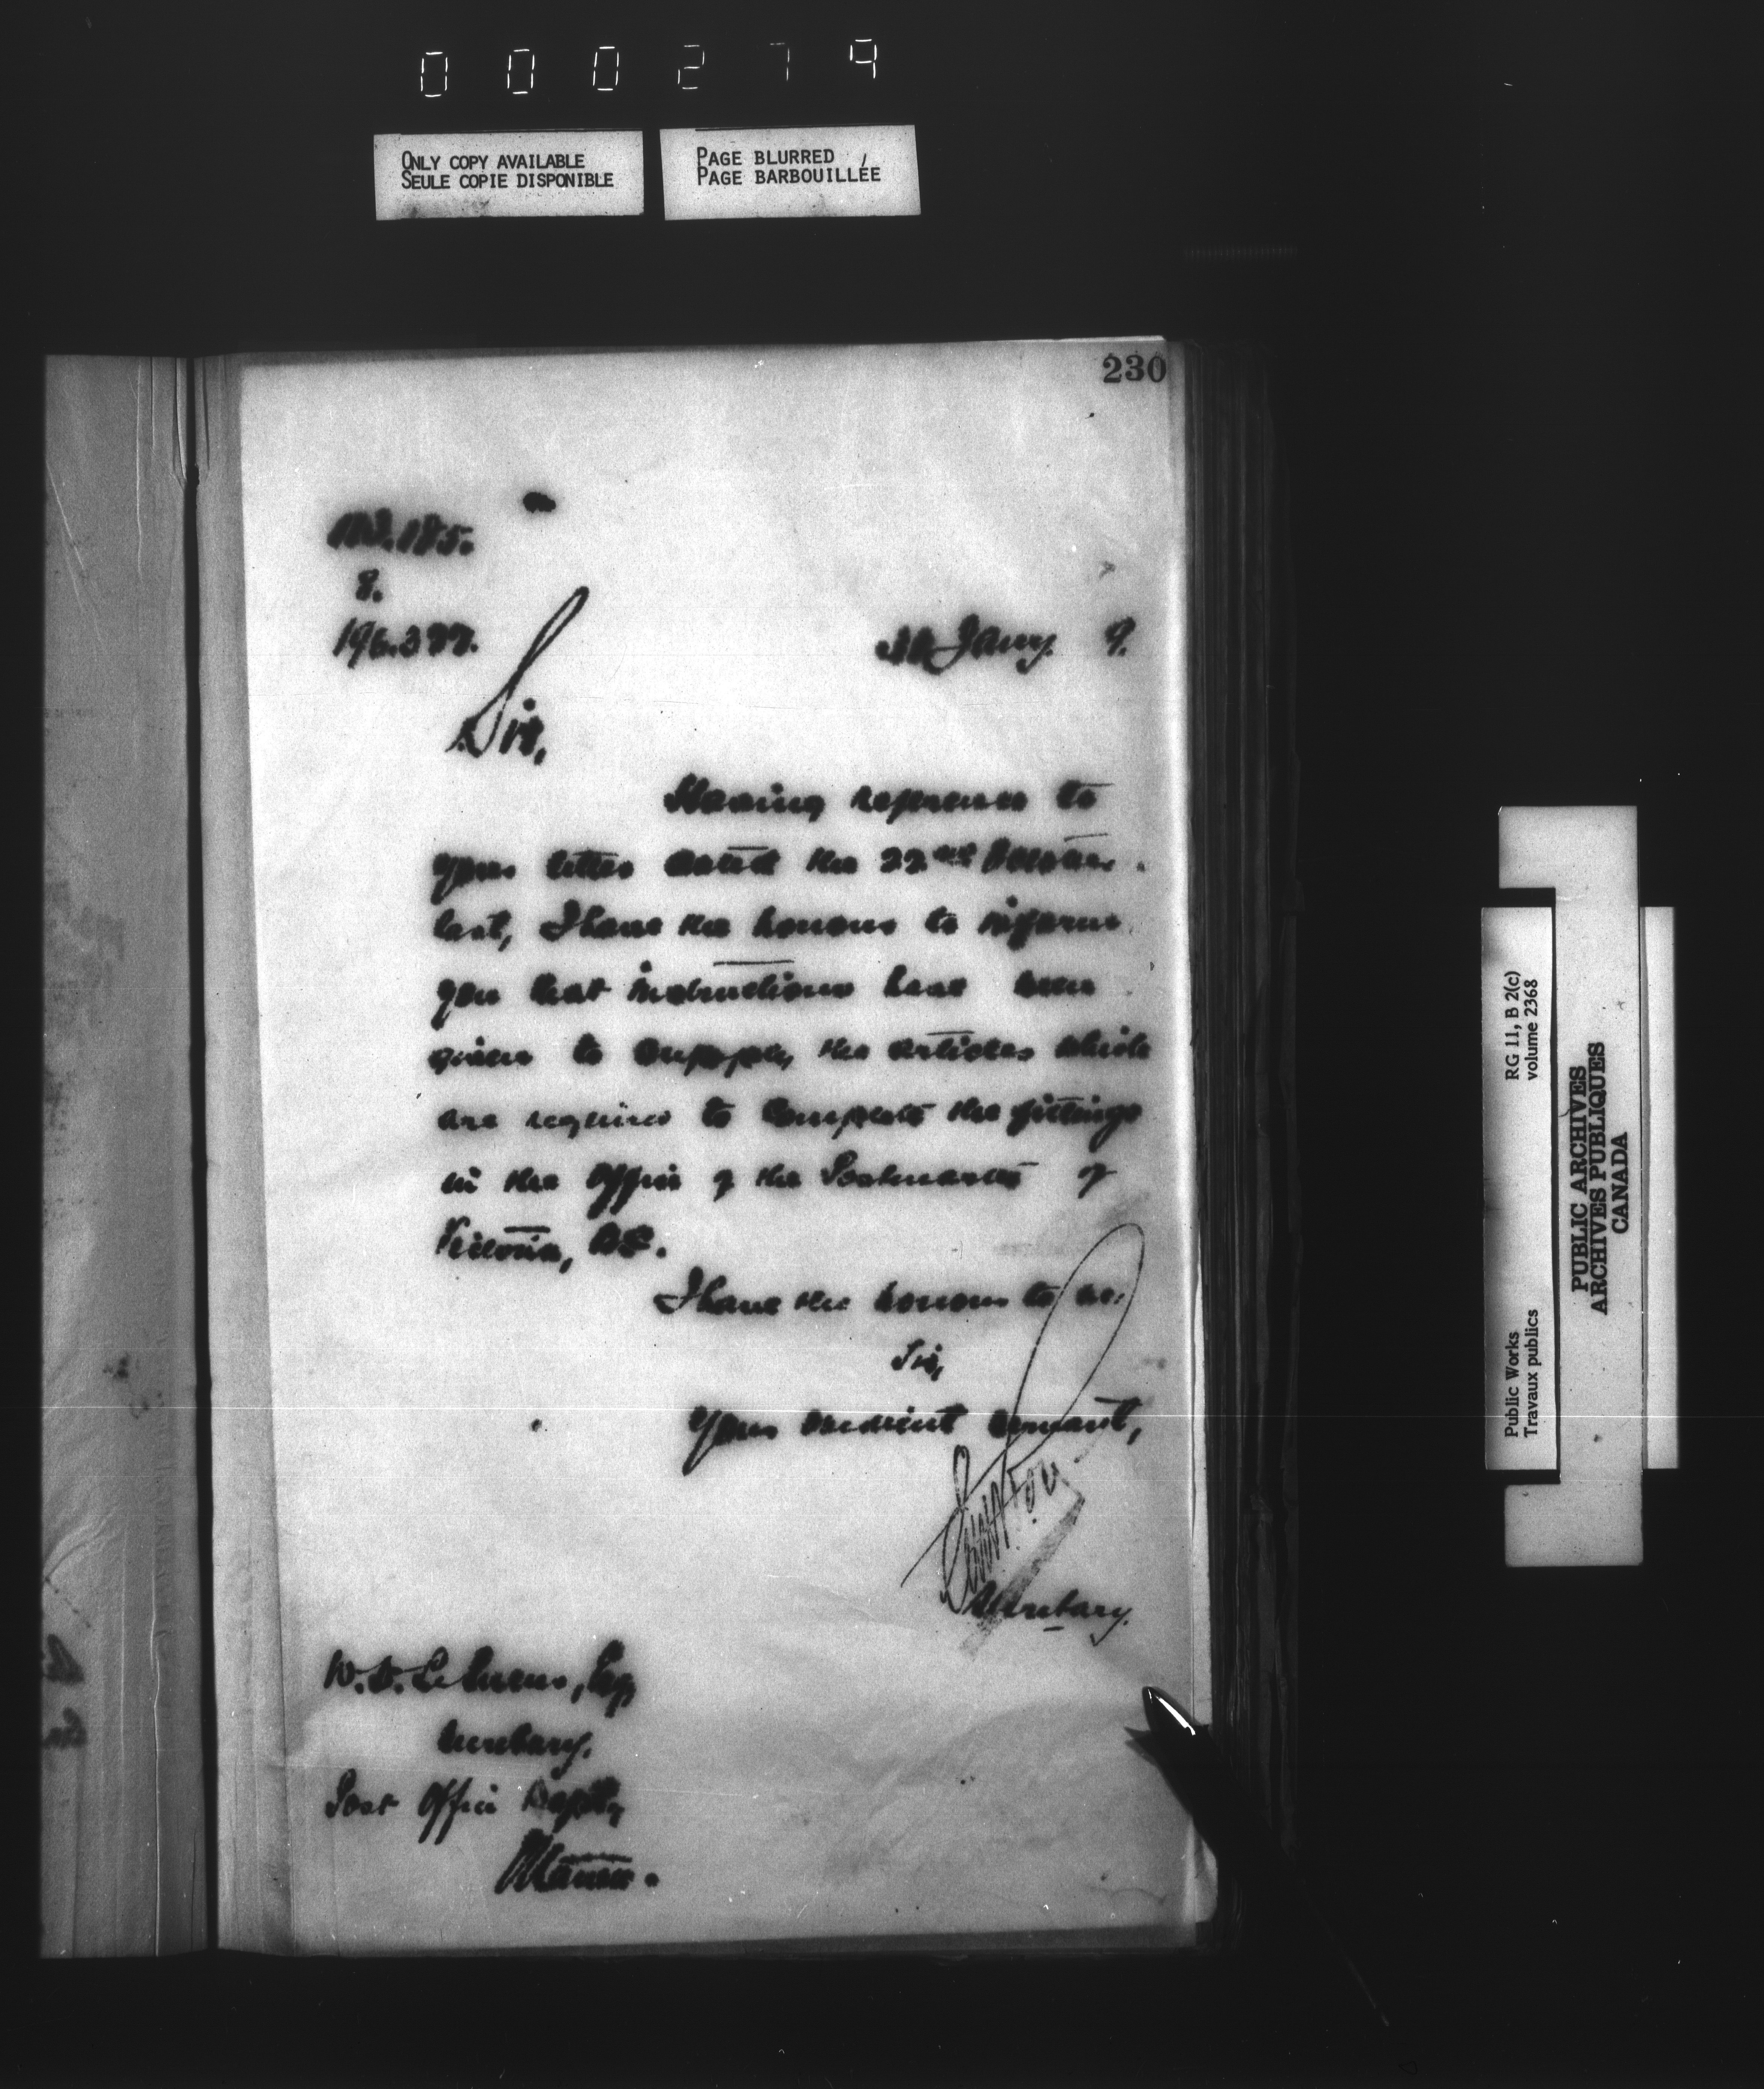 000279
ONLY COPY AVAILABLE
SEULE COPIE DISPONIBLE
PAGE BLURRED
PAGE BARBOUILLÉE
230
8.
Jany. 9.
Sir,
Having reference to
your letter dated the 22nd October
last, I have the honour to inform
you that instructions have been
given to supply the articles which
are required to complete the fittings
in the Office of the Postmaster of
Victoria, B.C.
I have the honour to be,
Sir,
Your obedient servant,
Secretary.
W. D. LeSueur, Esq,
Secretary,
Post Office Dept.,
Ottawa.
RG 11, B 2(c)
volume 2368
Public Works
Travaux publics
PUBLIC ARCHIVES
ARCHIVES PUBLIQUES
CANADA